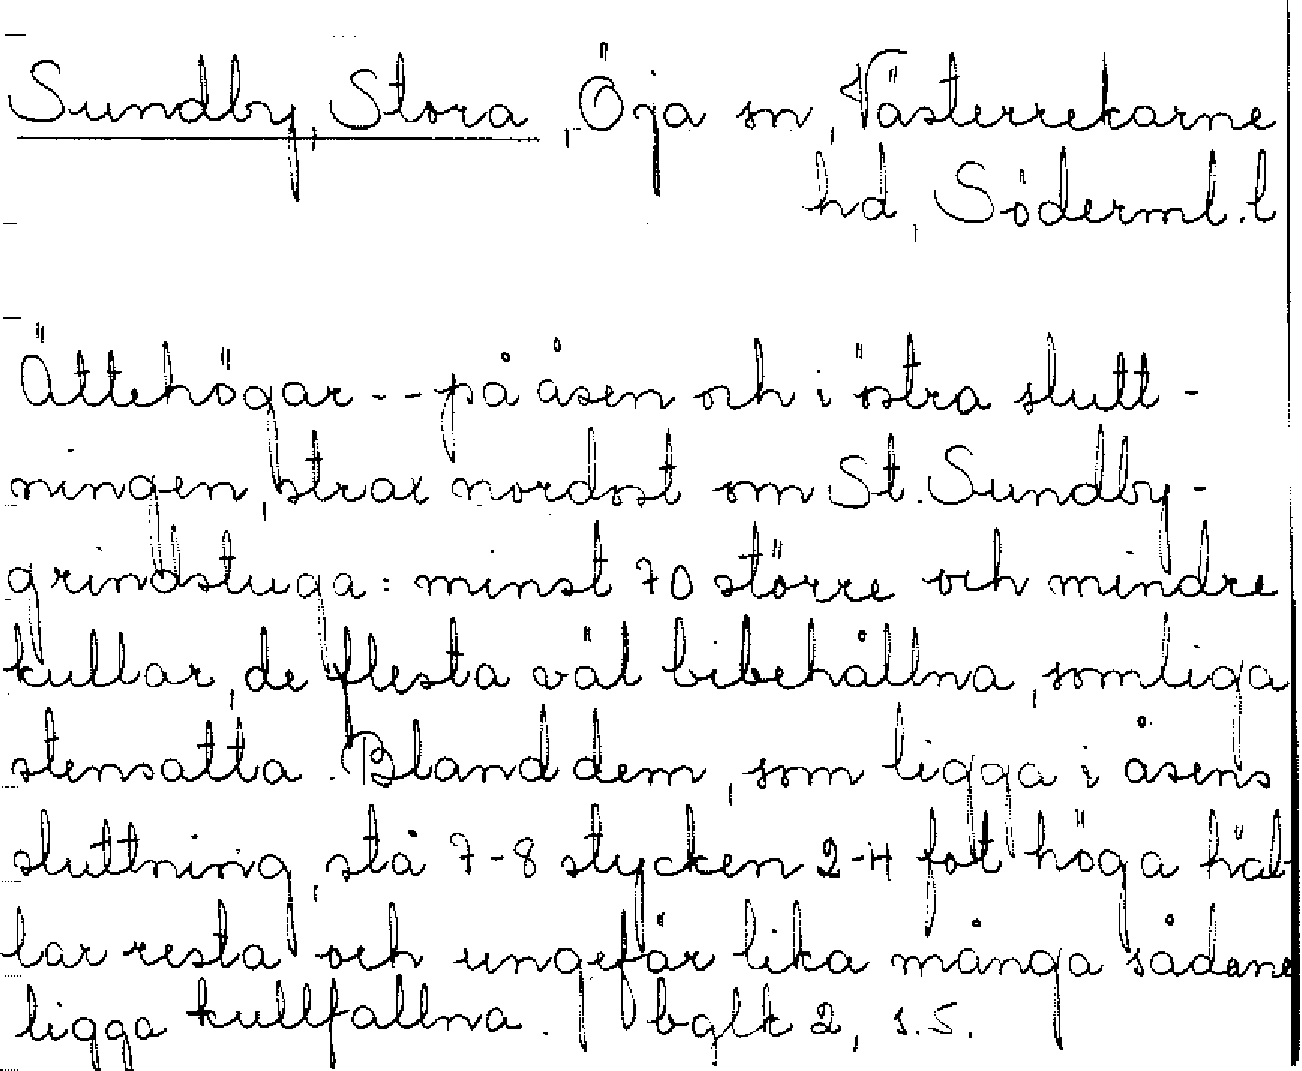 Sundby, Stora, Öja sn, Västerrekarne
hd, Söderml. l
Ättehögar -- på åsen och i östra slutt-
ningen, strax nordost om St. Sundby-
grindstuga: minst 70 större och mindre
kullar, de flesta väl bibehållna, somliga
stensatta. Bland dem, som ligga i åsens
sluttning, stå 7-8 stycken 2-4 fot höga häl-
lar resta och ungefär lika många sådana
ligga kullfallna. bglk 2, s. 5.